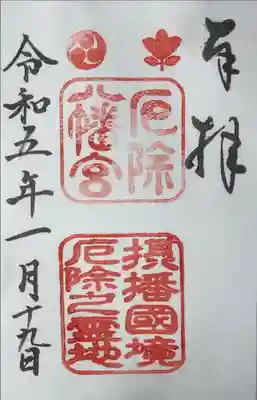 奉拝
厄除
八幡宮
摂播國境
厄除之霊地
令和五年一月十九日